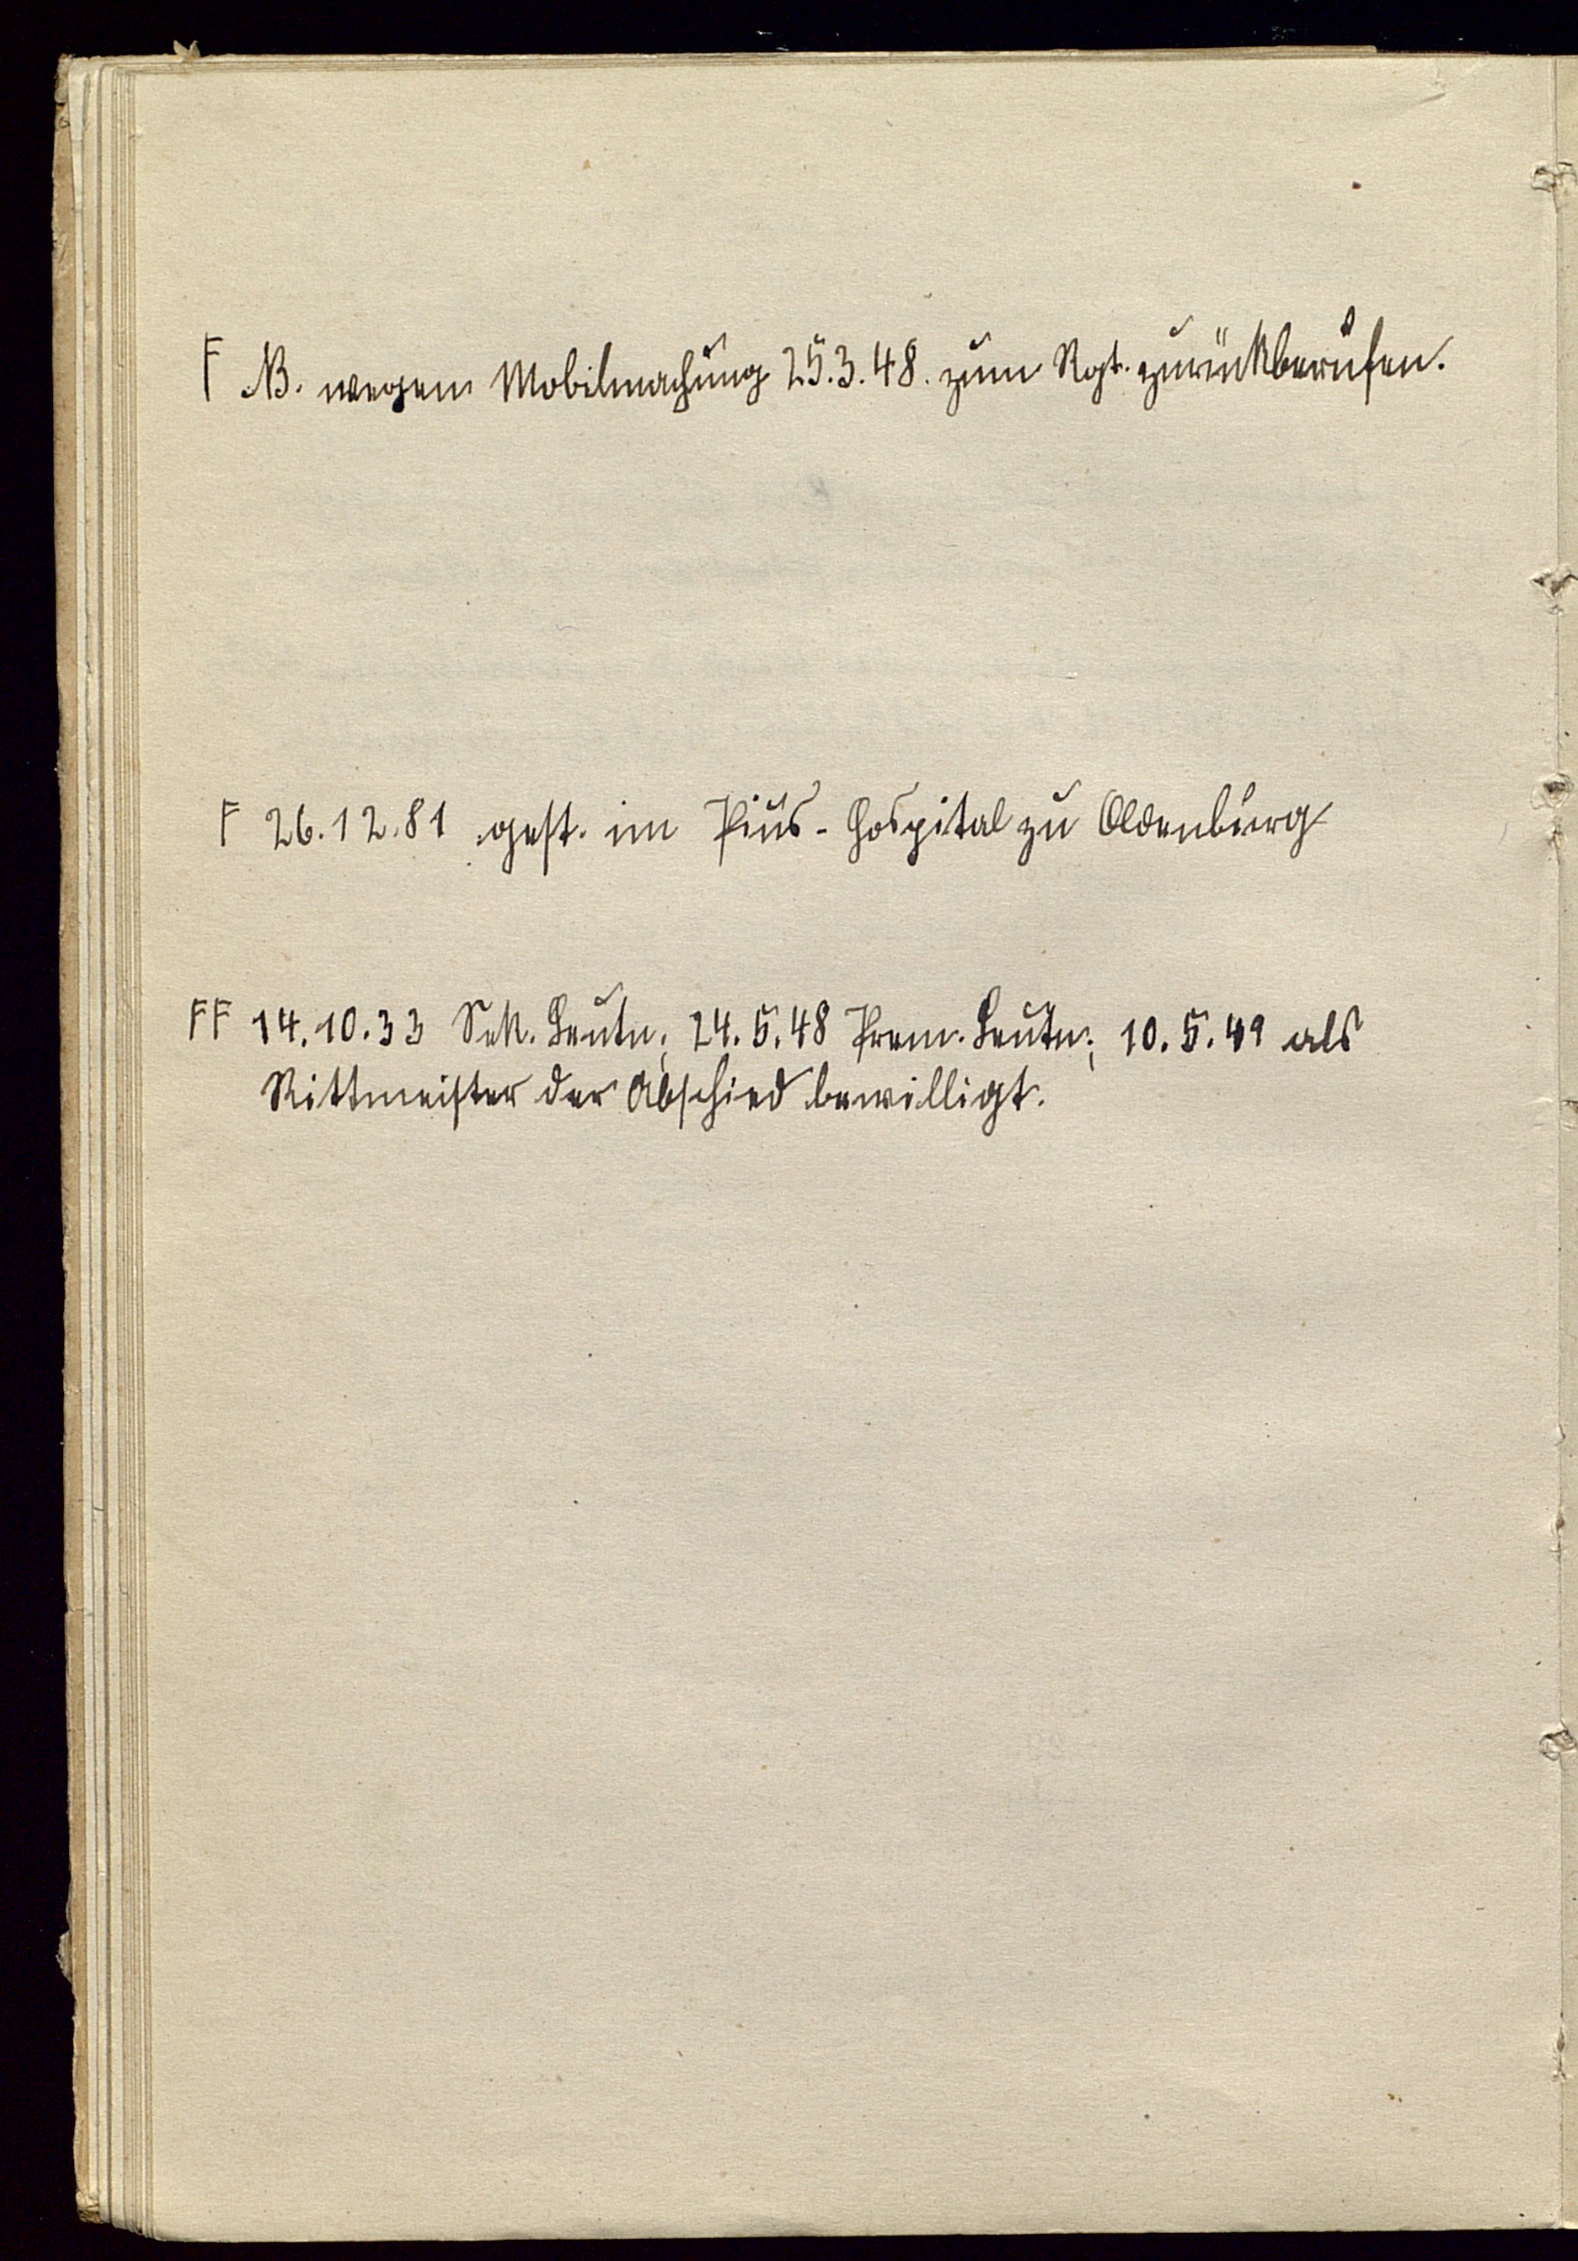 F NB. wegen Mobilmachung 25.3.48. zum Rgt. zurückberufen.
F 26.12.81 gest. im Pius-Hospital zu Oldenburg
FF 14.10.33 Sek. Leutn.; 24.5.48 Prem. Leutn.; 10.5.49 als
Rittmeister der Abschied bewilligt.